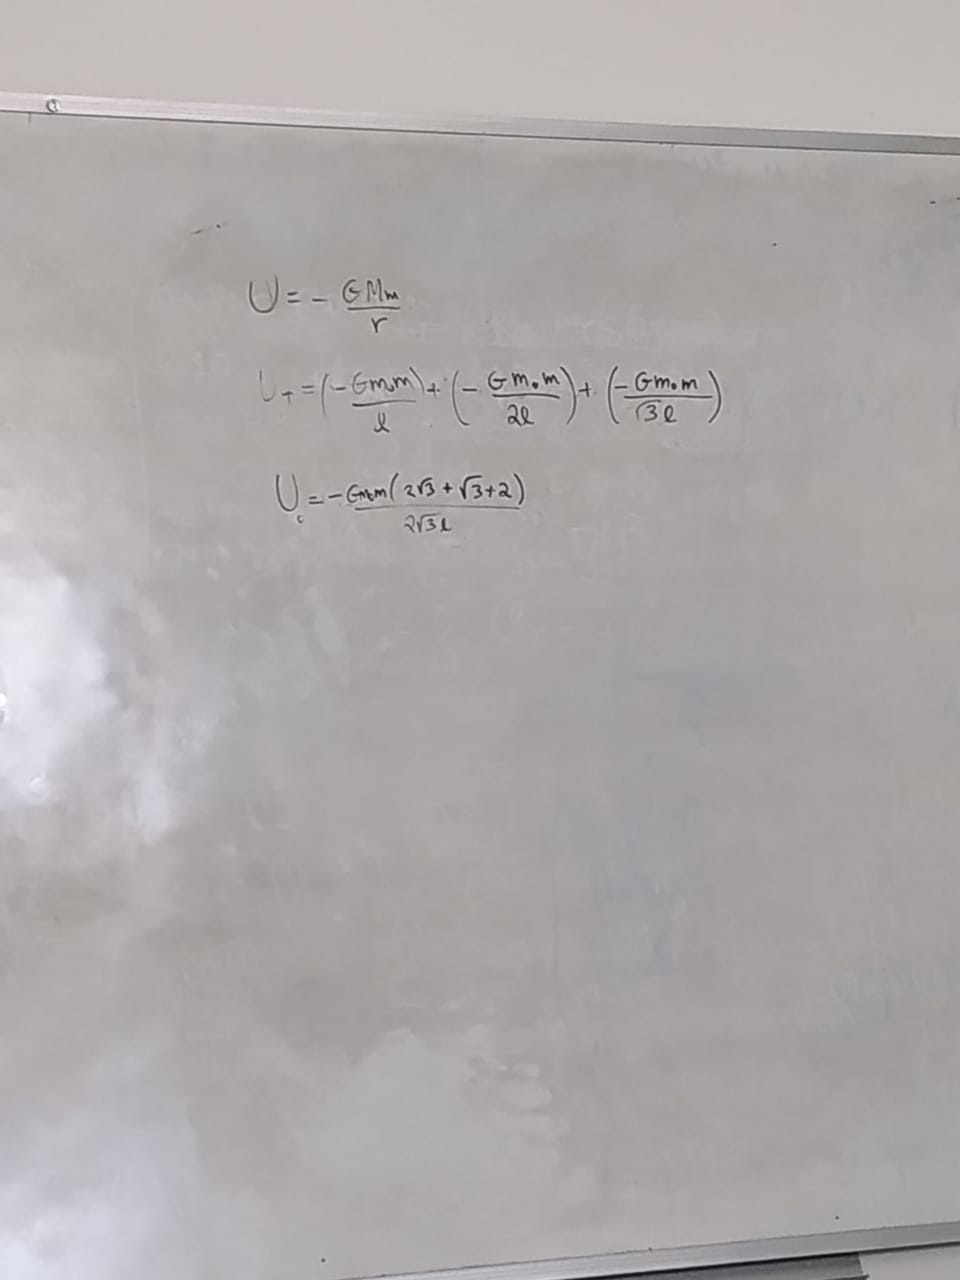 U = - GMm/r
U_T = (- Gm₀m/l) + (- Gm₀m/2l) + (- Gm₀m/√3l)
U₀ = - Gm₀m(2√3 + √3 + 2)/2√3l